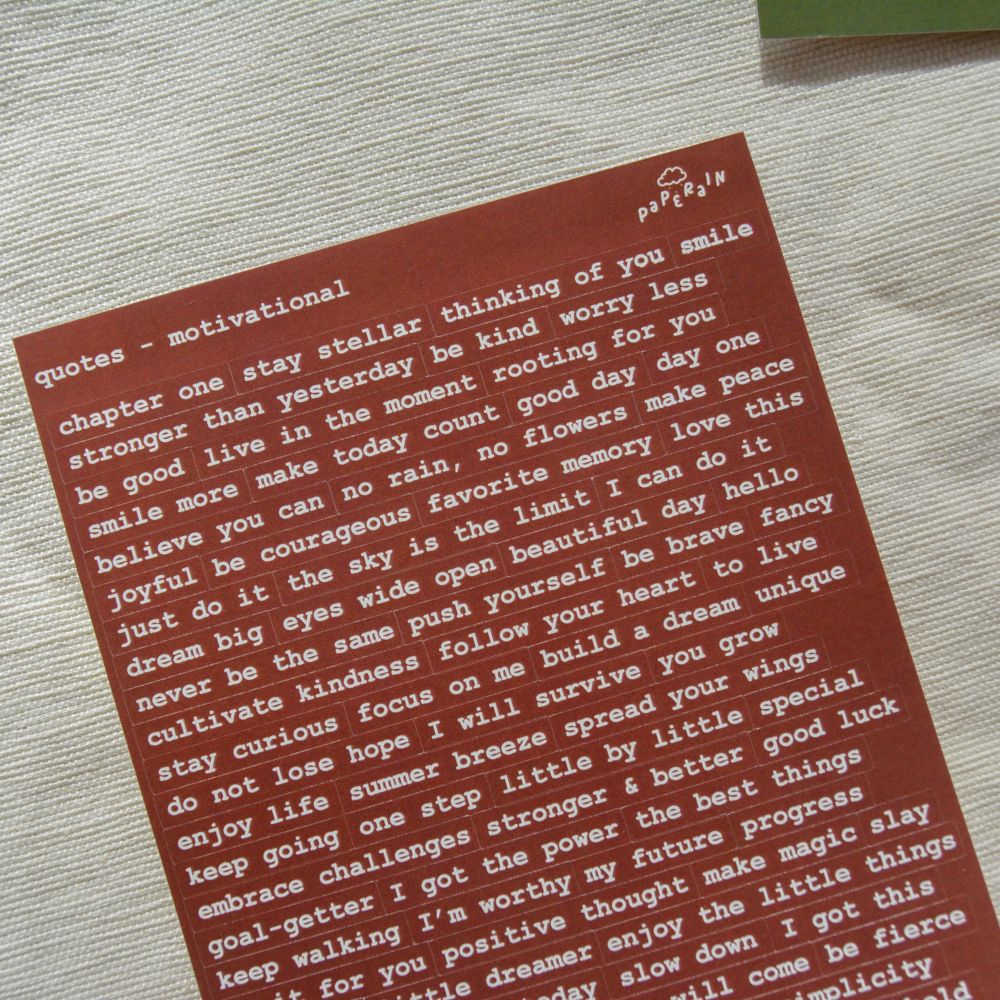 paperain
quotes - motivational
chapter one stay stellar thinking of you smile
stronger than yesterday be kind worry less
be good live in the moment rooting for you
smile more make today count good day day one
believe you can no rain, no flowers make peace
joyful be courageous favorite memory love this
just do it the sky is the limit I can do it
dream big eyes wide open beautiful day hello
never be the same push yourself be brave fancy
cultivate kindness follow your heart to live
stay curious focus on me build a dream unique
do not lose hope I will survive you grow
enjoy life summer breeze spread your wings
keep going one step little by little special
embrace challenges stronger & better good luck
goal-getter I got the power the best things
keep walking I'm worthy my future progress
it for you positive thought make magic slay
dreamer enjoy the little things
slow down I got this
will come be fierce
simplicity